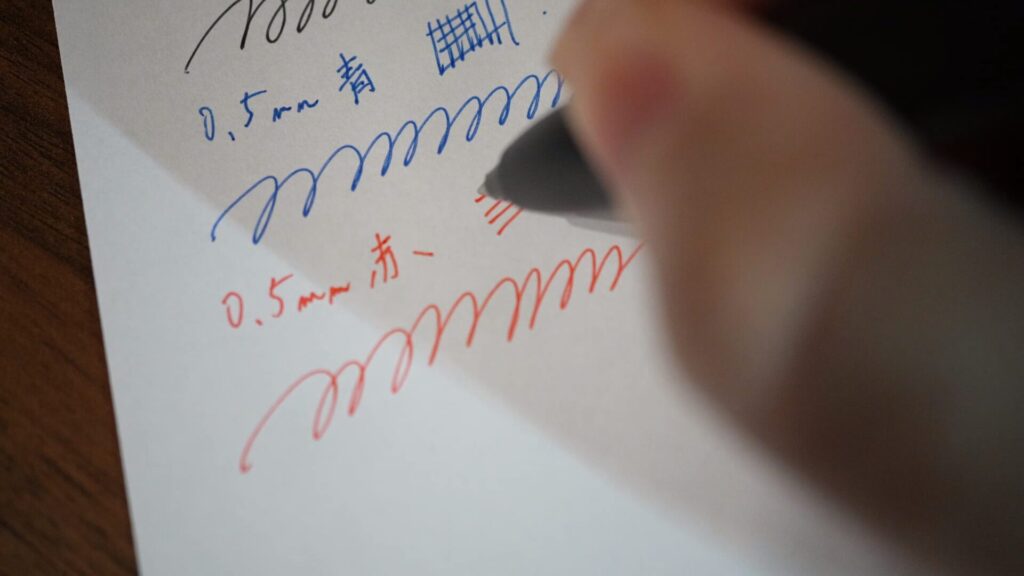 0.5mm 青
0.5mm 赤